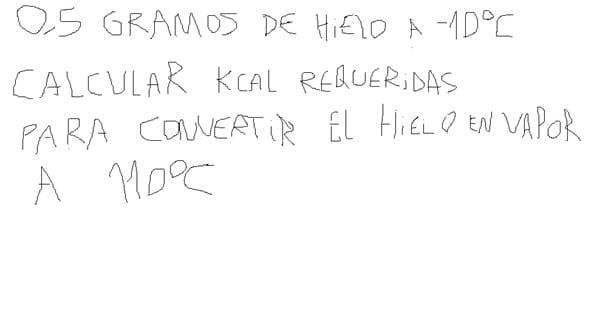 0.5 GRAMOS DE HiElO A -10°C
CALCULAR KCAL REQUERiDAS
PARA CONVERTiR El HiELO EN VAPOR
A 110°C